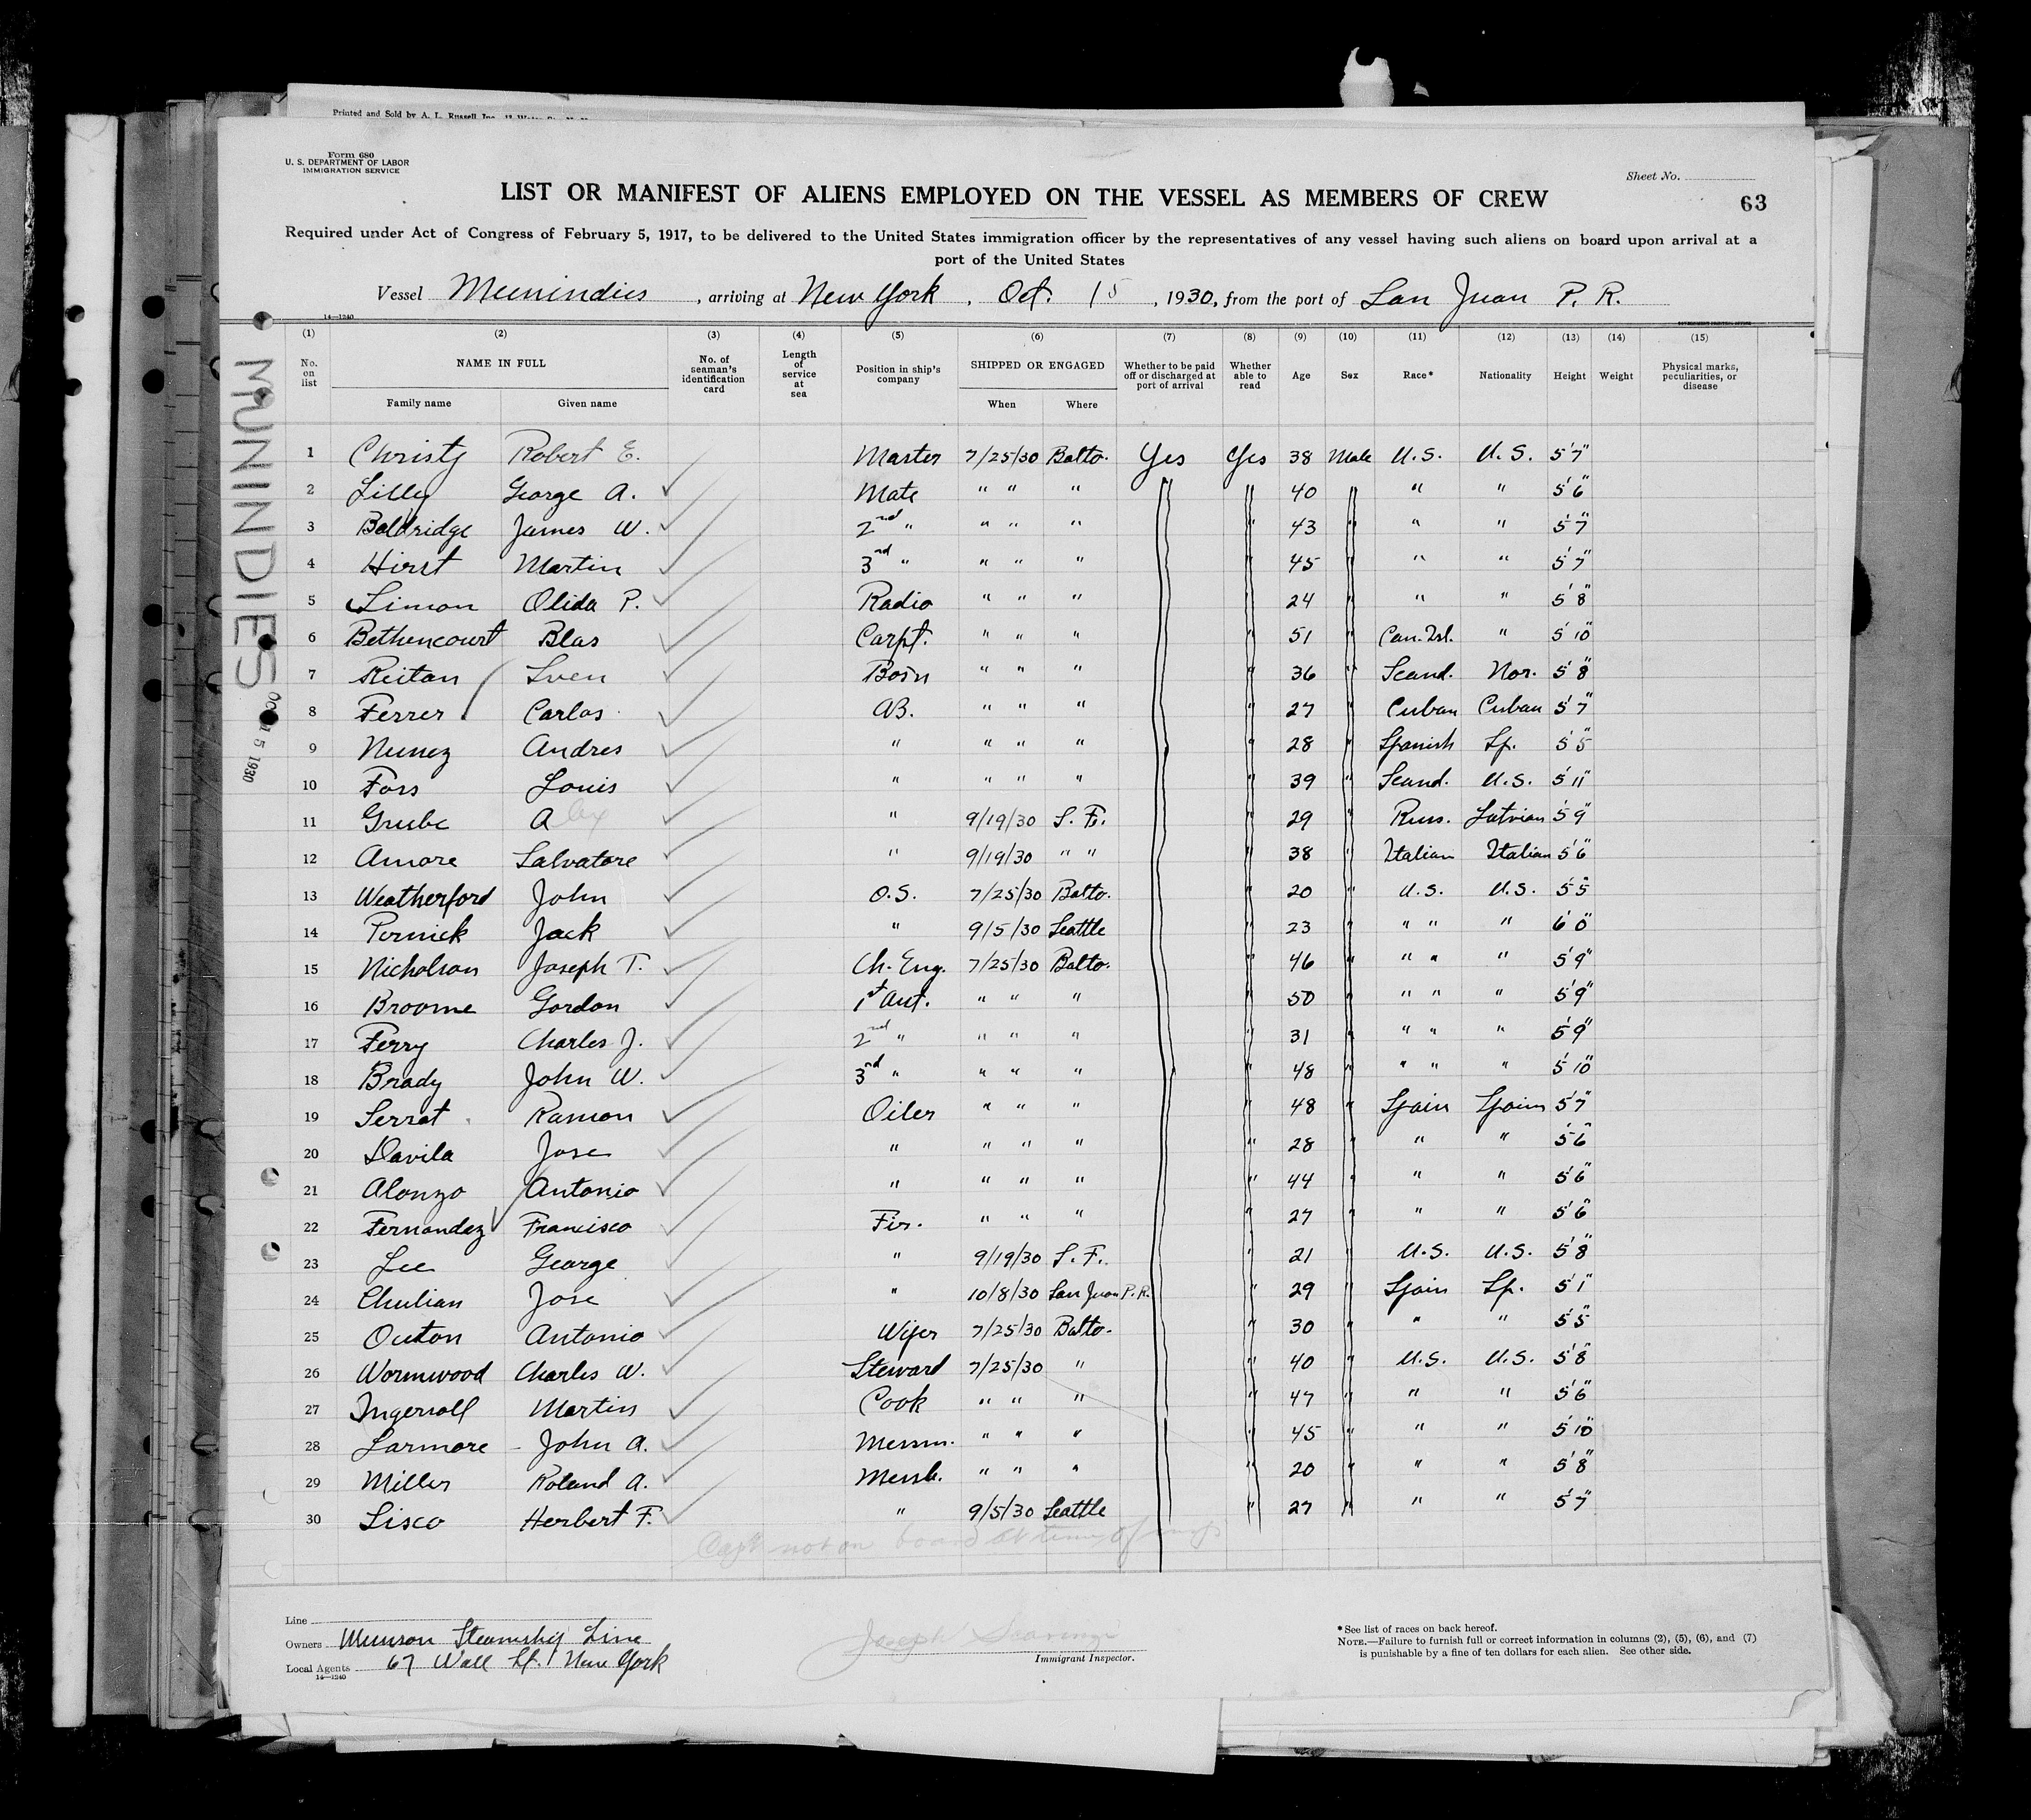 Printed and Sold by A. L. Russell Inc.
Form 680
U. S. DEPARTMENT OF LABOR
IMMIGRATION SERVICE
Sheet No.
LIST OR MANIFEST OF ALIENS EMPLOYED ON THE VESSEL AS MEMBERS OF CREW
63
Required under Act of Congress of February 5, 1917, to be delivered to the United States immigration officer by the representatives of any vessel having such aliens on board upon arrival at a
port of the United States
Vessel Munindies, arriving at New York, Oct. 15, 1930, from the port of San Juan P. R.
14—1240
(1) (2) (3) (4) (5) (6) (7) (8) (9) (10) (11) (12) (13) (14) (15)
No. on list NAME IN FULL No. of seaman's identification card Length of service at sea Position in ship's company SHIPPED OR ENGAGED Whether to be paid off or discharged at port of arrival Whether able to read Age Sex Race* Nationality Height Weight Physical marks, peculiarities, or disease
Family name Given name When Where
MUNINDIES
OCT 15 1930
1 Christy Robert E. Master 7/25/30 Balto. Yes Yes 38 Male U.S. U.S. 5'7"
2 Lilly George A. Mate " " " " 40 " " " 5'6"
3 Baldridge James W. 2nd " " " " " 43 " " " 5'7"
4 Hirst Martin 3rd " " " " " 45 " " " 5'7"
5 Simon Olida P. Radio " " " " 24 " " " 5'8"
6 Bethencourt Blas Carpt. " " " " 51 " Can. Isl. " 5'10"
7 Reitan Sven Bosn " " " " 36 " Scand. Nor. 5'8"
8 Ferrer Carlos AB. " " " " 27 " Cuban Cuban 5'7"
9 Nunez Andres " " " " " 28 " Spanish Sp. 5'5"
10 Foss Louis " " " " " 39 " Scand. U.S. 5'11"
11 Grube Alex " 9/19/30 S. F. " 29 " Russ. Latvian 5'9"
12 Amore Salvatore " 9/19/30 " " " 38 " Italian Italian 5'6"
13 Weatherford John O.S. 7/25/30 Balto. " 20 " U.S. U.S. 5'5"
14 Pernick Jack " 9/5/30 Seattle " 23 " " " " 6'0"
15 Nicholson Joseph T. Ch. Eng. 7/25/30 Balto. " 46 " " " " 5'9"
16 Broome Gordon 1st Asst. " " " " 50 " " " " 5'9"
17 Ferry Charles J. 2nd " " " " " 31 " " " " 5'9"
18 Brady John W. 3rd " " " " " 48 " " " " 5'10"
19 Serrat Ramon Oiler " " " " 48 " Spain Spain 5'7"
20 Davila Jose " " " " " 28 " " " 5'6"
21 Alonzo Antonio " " " " " 44 " " " 5'6"
22 Fernandez Francisco Fir. " " " " 27 " " " 5'6"
23 Lee George " 9/19/30 S. F. " 21 " U.S. U.S. 5'8"
24 Chulian Jose " 10/8/30 San Juan P.R. " 29 " Spain Sp. 5'1"
25 Outon Antonio Wiper 7/25/30 Balto. " 30 " " " 5'5"
26 Wormwood Charles W. Steward 7/25/30 " " 40 " U.S. U.S. 5'8"
27 Ingersoll Martin Cook " " " " 47 " " " 5'6"
28 Larmore - John A. Messm. " " " " 45 " " " 5'10"
29 Miller Roland A. Messb. " " " " 20 " " " 5'8"
30 Lisco Herbert F. " 9/5/30 Seattle " 27 " " " 5'7"
Capt not on board at time of
Line
Owners Munson Steamship Line
Local Agents 67 Wall St. New York
14—1240
Joseph
Immigrant Inspector.
*See list of races on back hereof.
NOTE.—Failure to furnish full or correct information in columns (2), (5), (6), and (7)
is punishable by a fine of ten dollars for each alien. See other side.